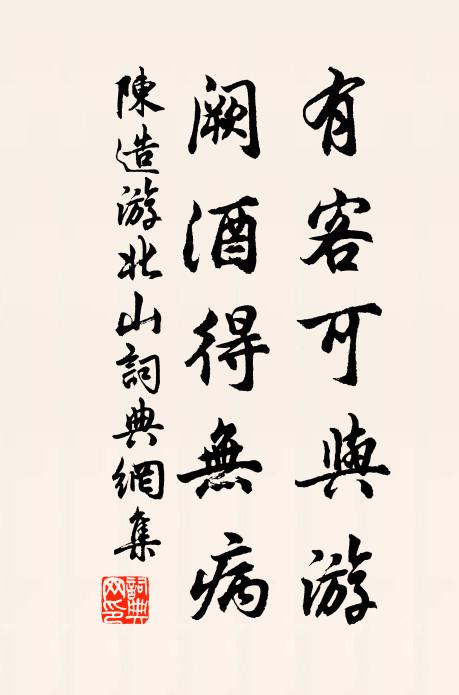 有客可與游
闕酒得無病
陳造游北山詞典網集
詞典網印